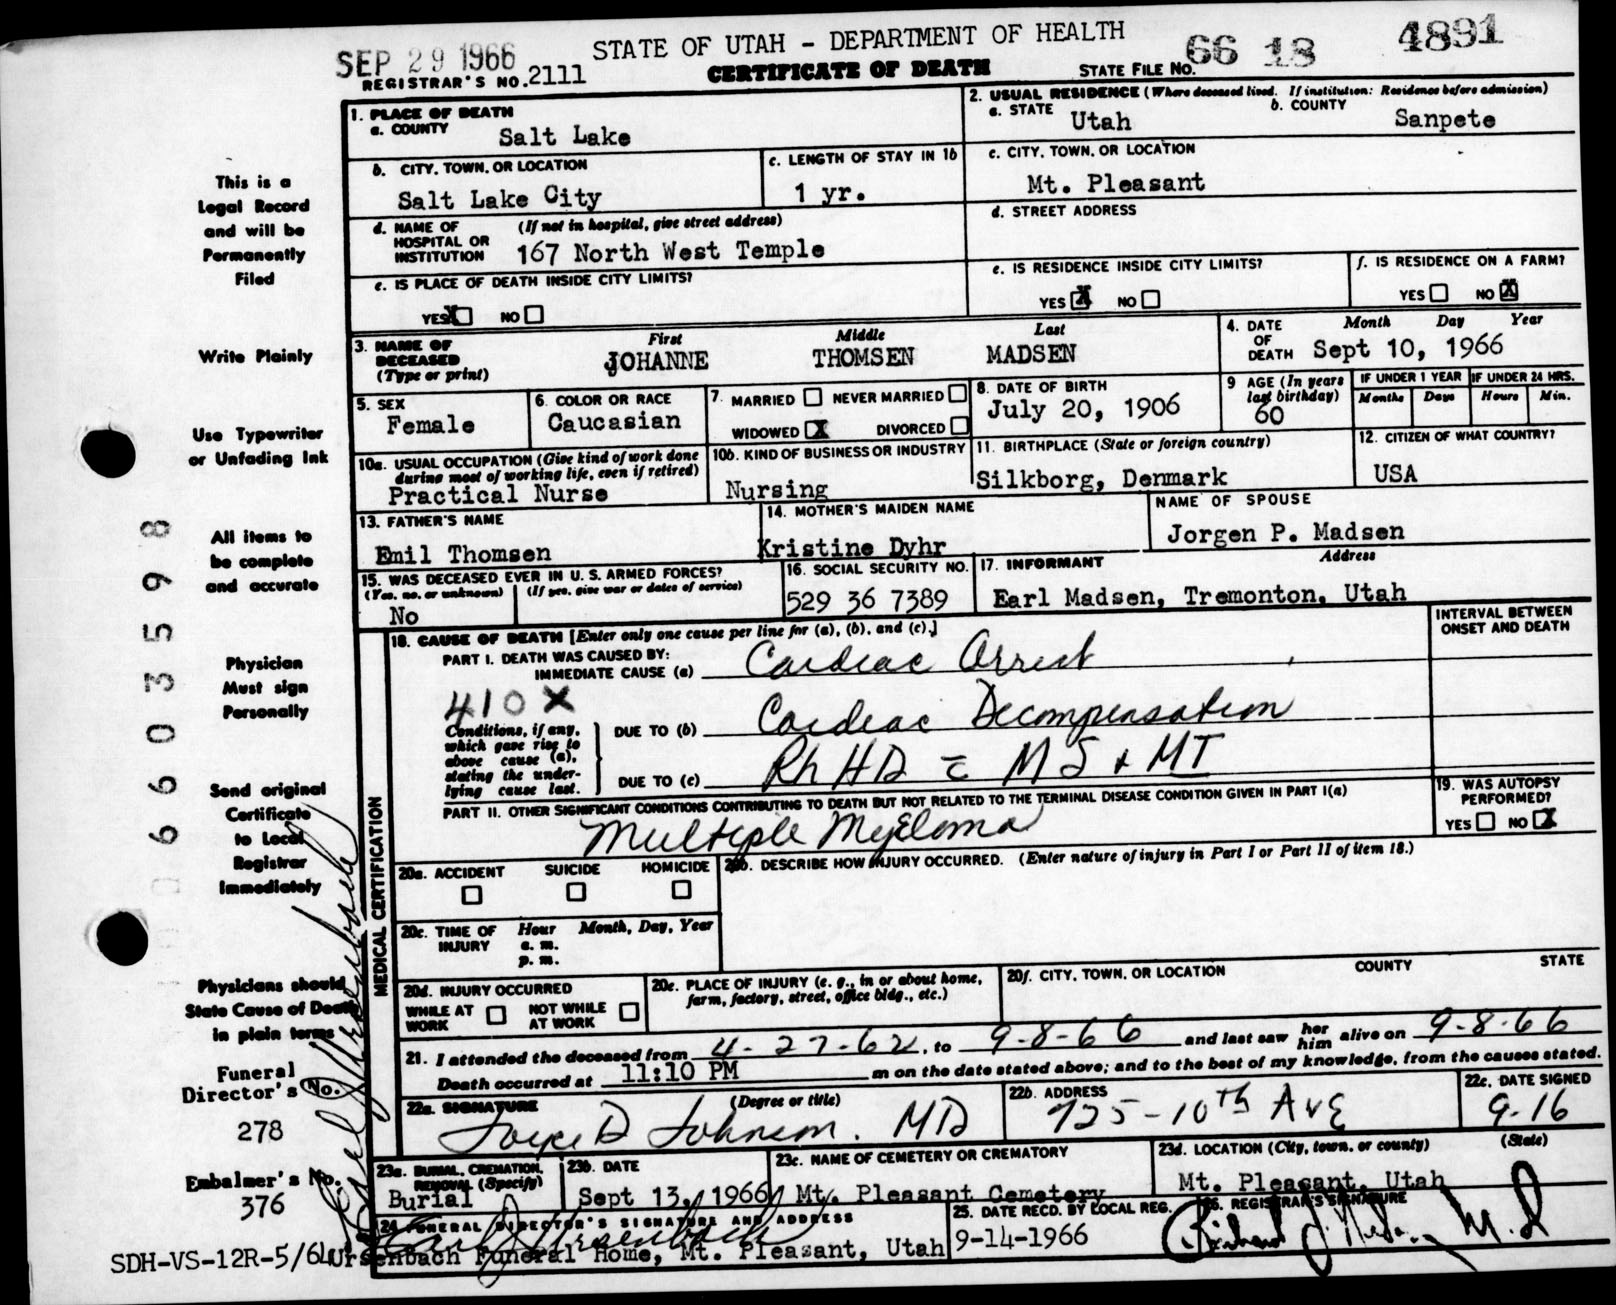 SEP 29 1966
STATE OF UTAH - DEPARTMENT OF HEALTH
66 18 4891
REGISTRAR'S NO. 2111
CERTIFICATE OF DEATH
STATE FILE NO.
This is a
Legal Record
and will be
Permanently
Filed
Write Plainly
Use Typewriter
or Unfading Ink
All items to
be complete
and accurate
Physician
Must sign
Personally
Send original
Certificate
to Local
Registrar
Immediately
Physicians should
State Cause of Death
in plain terms
Funeral
Director's No.
278
Embalmer's No.
376
SDH-VS-12R-5/64
6603598
1. PLACE OF DEATH
a. COUNTY Salt Lake
2. USUAL RESIDENCE (Where deceased lived. If institution: Residence before admission)
a. STATE Utah b. COUNTY Sanpete
b. CITY, TOWN, OR LOCATION
Salt Lake City
c. LENGTH OF STAY IN 1b
1 yr.
c. CITY, TOWN, OR LOCATION
Mt. Pleasant
d. NAME OF HOSPITAL OR INSTITUTION (If not in hospital, give street address)
167 North West Temple
d. STREET ADDRESS
e. IS PLACE OF DEATH INSIDE CITY LIMITS?
YES X NO
e. IS RESIDENCE INSIDE CITY LIMITS?
YES X NO
f. IS RESIDENCE ON A FARM?
YES NO X
3. NAME OF DECEASED (Type or print)
First Middle Last
JOHANNE THOMSEN MADSEN
4. DATE OF DEATH Month Day Year
Sept 10, 1966
5. SEX
Female
6. COLOR OR RACE
Caucasian
7. MARRIED NEVER MARRIED
WIDOWED X DIVORCED
8. DATE OF BIRTH
July 20, 1906
9 AGE (In years last birthday)
60
IF UNDER 1 YEAR IF UNDER 24 HRS.
Months Days Hours Min.
10a. USUAL OCCUPATION (Give kind of work done during most of working life, even if retired)
Practical Nurse
10b. KIND OF BUSINESS OR INDUSTRY
Nursing
11. BIRTHPLACE (State or foreign country)
Silkborg, Denmark
12. CITIZEN OF WHAT COUNTRY?
USA
13. FATHER'S NAME
Emil Thomsen
14. MOTHER'S MAIDEN NAME
Kristine Dyhr
NAME OF SPOUSE
Jorgen P. Madsen
15. WAS DECEASED EVER IN U. S. ARMED FORCES?
(Yes, no, or unknown) (If yes, give war or dates of service)
No
16. SOCIAL SECURITY NO.
529 36 7389
17. INFORMANT Address
Earl Madsen, Tremonton, Utah
MEDICAL CERTIFICATION
18. CAUSE OF DEATH [Enter only one cause per line for (a), (b), and (c).]
INTERVAL BETWEEN ONSET AND DEATH
PART I. DEATH WAS CAUSED BY:
IMMEDIATE CAUSE (a) Cardiac Arrest
410 X
Conditions, if any, which gave rise to above cause (a), stating the underlying cause last.
DUE TO (b) Cardiac Decompensation
DUE TO (c) Rh HD c MS + MI
PART II. OTHER SIGNIFICANT CONDITIONS CONTRIBUTING TO DEATH BUT NOT RELATED TO THE TERMINAL DISEASE CONDITION GIVEN IN PART I(a)
Multiple Myeloma
19. WAS AUTOPSY PERFORMED?
YES NO X
20a. ACCIDENT SUICIDE HOMICIDE
20b. DESCRIBE HOW INJURY OCCURRED. (Enter nature of injury in Part I or Part II of item 18.)
20c. TIME OF INJURY Hour Month, Day, Year
a. m.
p. m.
20d. INJURY OCCURRED
WHILE AT WORK NOT WHILE AT WORK
20e. PLACE OF INJURY (e. g., in or about home, farm, factory, street, office bldg., etc.)
20f. CITY, TOWN, OR LOCATION COUNTY STATE
21. I attended the deceased from 4-27-62, to 9-8-66 and last saw her him alive on 9-8-66
Death occurred at 11:10 PM m on the date stated above; and to the best of my knowledge, from the causes stated.
22a. SIGNATURE (Degree or title)
Joyce D Johnson. MD
22b. ADDRESS
725-10th Ave
22c. DATE SIGNED
9-16
23a. BURIAL, CREMATION, REMOVAL (Specify)
Burial
23b. DATE
Sept 13, 1966
23c. NAME OF CEMETERY OR CREMATORY
Mt. Pleasant Cemetery
23d. LOCATION (City, town, or county) (State)
Mt. Pleasant, Utah
24 FUNERAL DIRECTOR'S SIGNATURE AND ADDRESS
Ursenbach Funeral Home, Mt. Pleasant, Utah
25. DATE RECD. BY LOCAL REG.
9-14-1966
26. REGISTRAR'S SIGNATURE
M.D